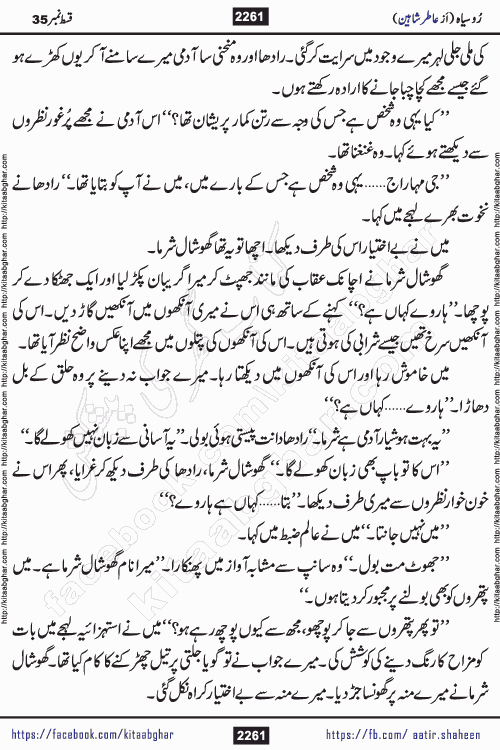 رُوسیاہ (اَز عاطر شاہین)
2261
قسط نمبر 35
کی ملی جلی لہر میرے وجود میں سرایت کر گئی۔ رادھا اور وہ منحنی سا آدمی میرے سامنے آ کر یوں کھڑے ہو
گئے جیسے مجھے کچا چبا جانے کا ارادہ رکھتے ہوں۔
’’کیا یہی وہ شخص ہے جس کی وجہ سے رتن کمار پریشان تھا؟‘‘ اس آدمی نے مجھے پُرغور نظروں
سے دیکھتے ہوئے کہا۔ وہ غنغنا تھا۔
’’جی مہاراج...... یہی وہ شخص ہے جس کے بارے میں، میں نے آپ کو بتایا تھا۔‘‘ رادھا نے
نخوت بھرے لہجے میں کہا۔
میں نے بے اختیار اس کی طرف دیکھا۔ اچھا تو یہ تھا گھوشال شرما۔
گھوشال شرما نے اچانک عقاب کی مانند جھپٹ کر میرا گریبان پکڑ لیا اور ایک جھٹکا دے کر
پوچھا۔ ’’ہاروے کہاں ہے؟‘‘ کہنے کے ساتھ ہی اس نے میری آنکھوں میں آنکھیں گاڑ دیں۔ اس کی
آنکھیں سرخ تھیں جیسے شرابی کی ہوتی ہیں۔ اس کی آنکھوں کی پتلوں میں مجھے اپنا عکس واضح نظر آیا تھا۔
میں خاموش رہا اور اس کی آنکھوں میں دیکھتا رہا۔ میرے جواب نہ دینے پر وہ حلق کے بل
دھاڑا۔ ’’ہاروے...... کہاں ہے؟‘‘
’’یہ بہت ہوشیار آدمی ہے شرما۔‘‘ رادھا دانت پیستی ہوئی بولی۔ ’’یہ آسانی سے زبان نہیں کھولے گا۔‘‘
’’اس کا تو باپ بھی زبان کھولے گا۔‘‘ گھوشال شرما، رادھا کی طرف دیکھ کر غرایا، پھر اس نے
خون خوار نظروں سے میری طرف دیکھا۔ ’’بتا...... کہاں ہے ہاروے؟‘‘
’’میں نہیں جانتا۔‘‘ میں نے عالم ضبط میں کہا۔
’’جھوٹ مت بول۔‘‘ وہ سانپ سے مشابہ آواز میں پھنکارا۔ ’’میرا نام گھوشال شرما ہے۔ میں
پتھروں کو بھی بولنے پر مجبور کر دیتا ہوں۔‘‘
’’تو پھر پتھروں سے جا کر پوچھو، مجھ سے کیوں پوچھ رہے ہو؟‘‘ میں نے استہزائیہ لہجے میں بات
کو مزاح کا رنگ دینے کی کوشش کی۔ میرے جواب نے تو گویا جلتی پر تیل چھڑکنے کا کام کیا تھا۔ گھوشال
شرما نے میرے منہ پر گھونسا جڑ دیا۔ میرے منہ سے بے اختیار کراہ نکل گئی۔
https://facebook.com/kitaabghar
2261
https://fb.com/ aatir.shaheen
http://kitaabghar.com http://kitaabghar.com http://kitaabghar.com http://kitaabghar.com
http://kitaabghar.com http://kitaabghar.com http://kitaabghar.com http://kitaabghar.com
facebook.com/kitaabghar
kitaabghar.com